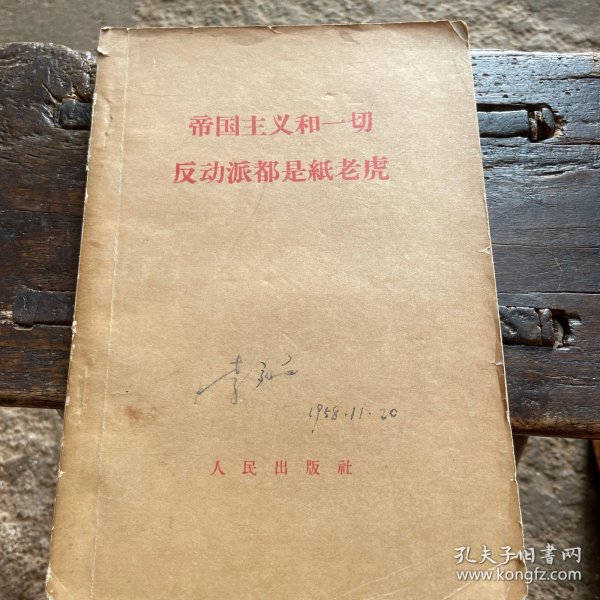 帝国主义和一切
反动派都是紙老虎
1958.11.20
人民出版社
孔夫子旧书网
www.kongfz.com